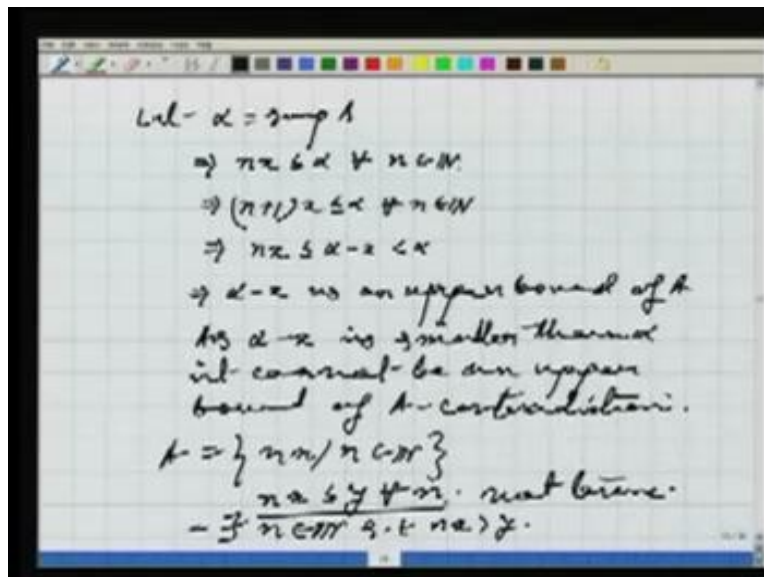 Let α = sup A
⇒ nx ≤ α ∀ n ∈ ℕ.
⇒ (n+1)x ≤ α ∀ n ∈ ℕ
⇒ nx ≤ α-x < α
⇒ α-x is an upper bound of A
As α-x is smaller than α
it cannot be an upper
bound of A - contradiction.
A = { nx / n ∈ ℕ }
nx ≤ y ∀ n. not true.
- ∃ n ∈ ℕ s.t nx > y.